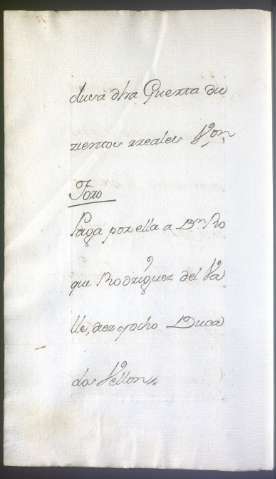 ducá dha Guerta du
zientos rreales Von,
Foro
Paga por ella a Dn Ro
que Rodriguez del Va
lle, diez y ocho Duca
dos Vellon